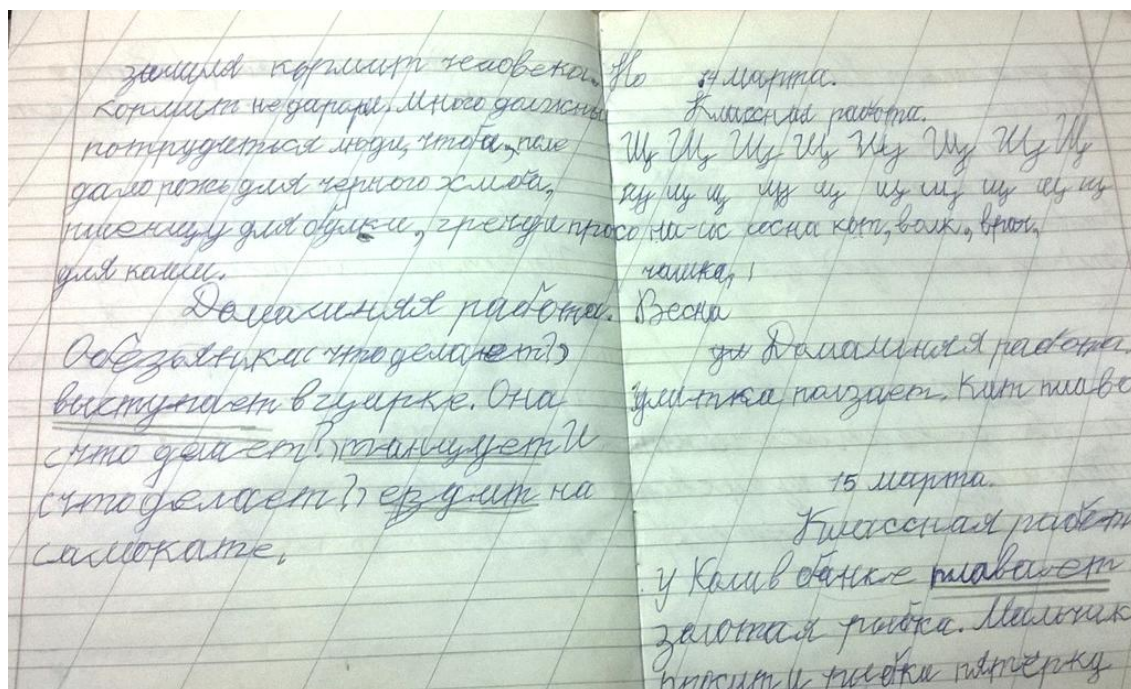 земля кормит человека. Но
кормит не даром. Много должны
потрудиться люди, чтобы поле
дало рожь для черного хлеба,
пшеницу для булки, гречу и просо
для каши.
Домашняя работа.
Обезьянка (что делает?)
выступает в цирке. Она
(что делает?) танцует И
(что делает?) ездит на
самокате.
14 марта.
Классная работа.
Щ Щ Щ Щ Щ Щ Щ Щ
щ щ щ щ щ щ щ щ щ щ
на-ос весна кот, волк, врач,
чашка,
Весна
Домашняя работа.
улитка ползает. Кит плавае
15 марта.
Классная работ
у Коли в банке плавает
золотая рыбка. Мальчик
просит у рыбки пятёрку